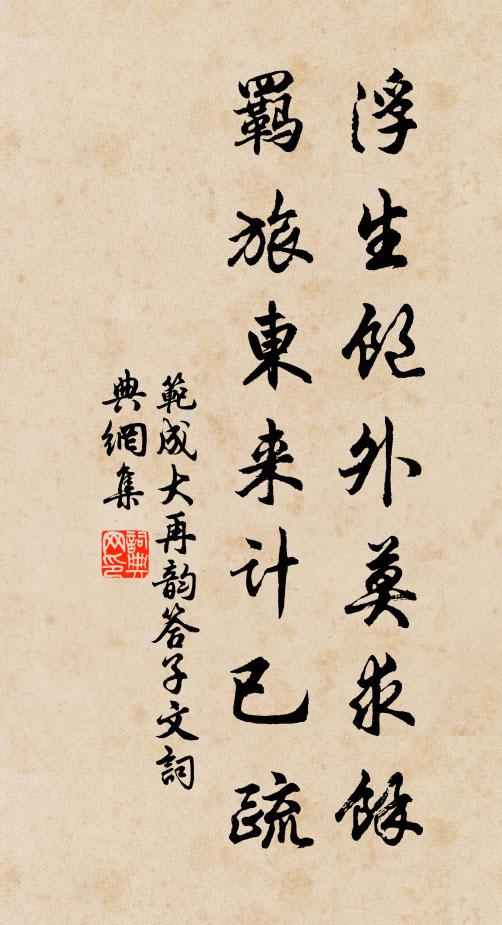 浮生飽外莫求餘
羈旅東来计已疏
範成大再韵答子文詞
典網集
詞典网印